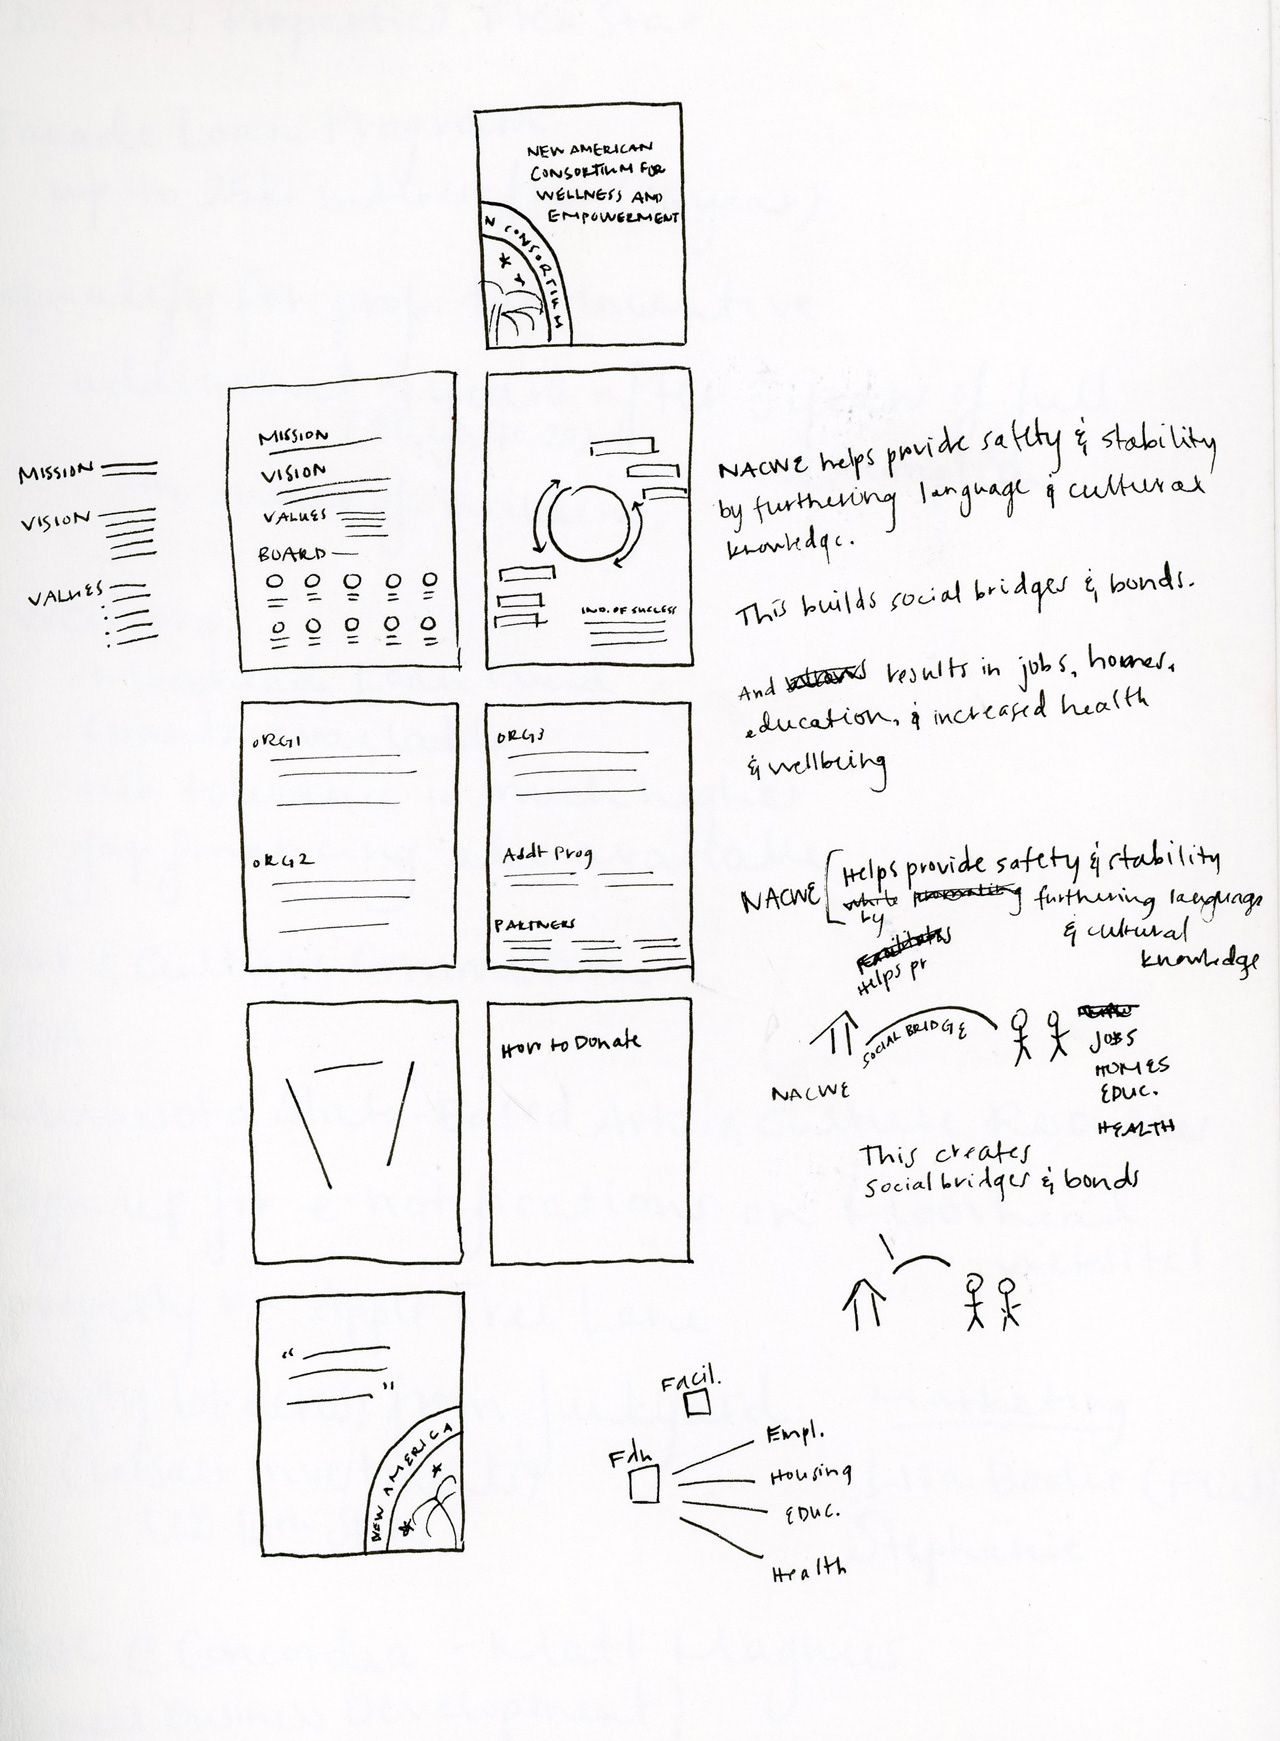 NEW AMERICAN
CONSORTIUM FOR
WELLNESS AND
EMPOWERMENT
N CONSORTIUM
MISSION
VISION
VALUES
MISSION
VISION
VALUES
BOARD
IND. OF SUCCESS
NACWE helps provide safety & stability
by furthering language & cultural
knowledge.
This builds social bridges & bonds.
And results in jobs, homes,
education, & increased health
& wellbeing
ORG1
ORG2
ORG3
Addt Prog
PARTNERS
NACWE
Helps provide safety & stability
while promoting furthering language
by
& cultural
knowledge
Facilitates
Helps pr
How to Donate
SOCIAL BRIDGE
NACWE
JOBS
HOMES
EDUC.
HEALTH
This creates
social bridges & bonds
“
”
NEW AMERICA
Facil.
Fdn
Empl.
Housing
EDUC.
Health